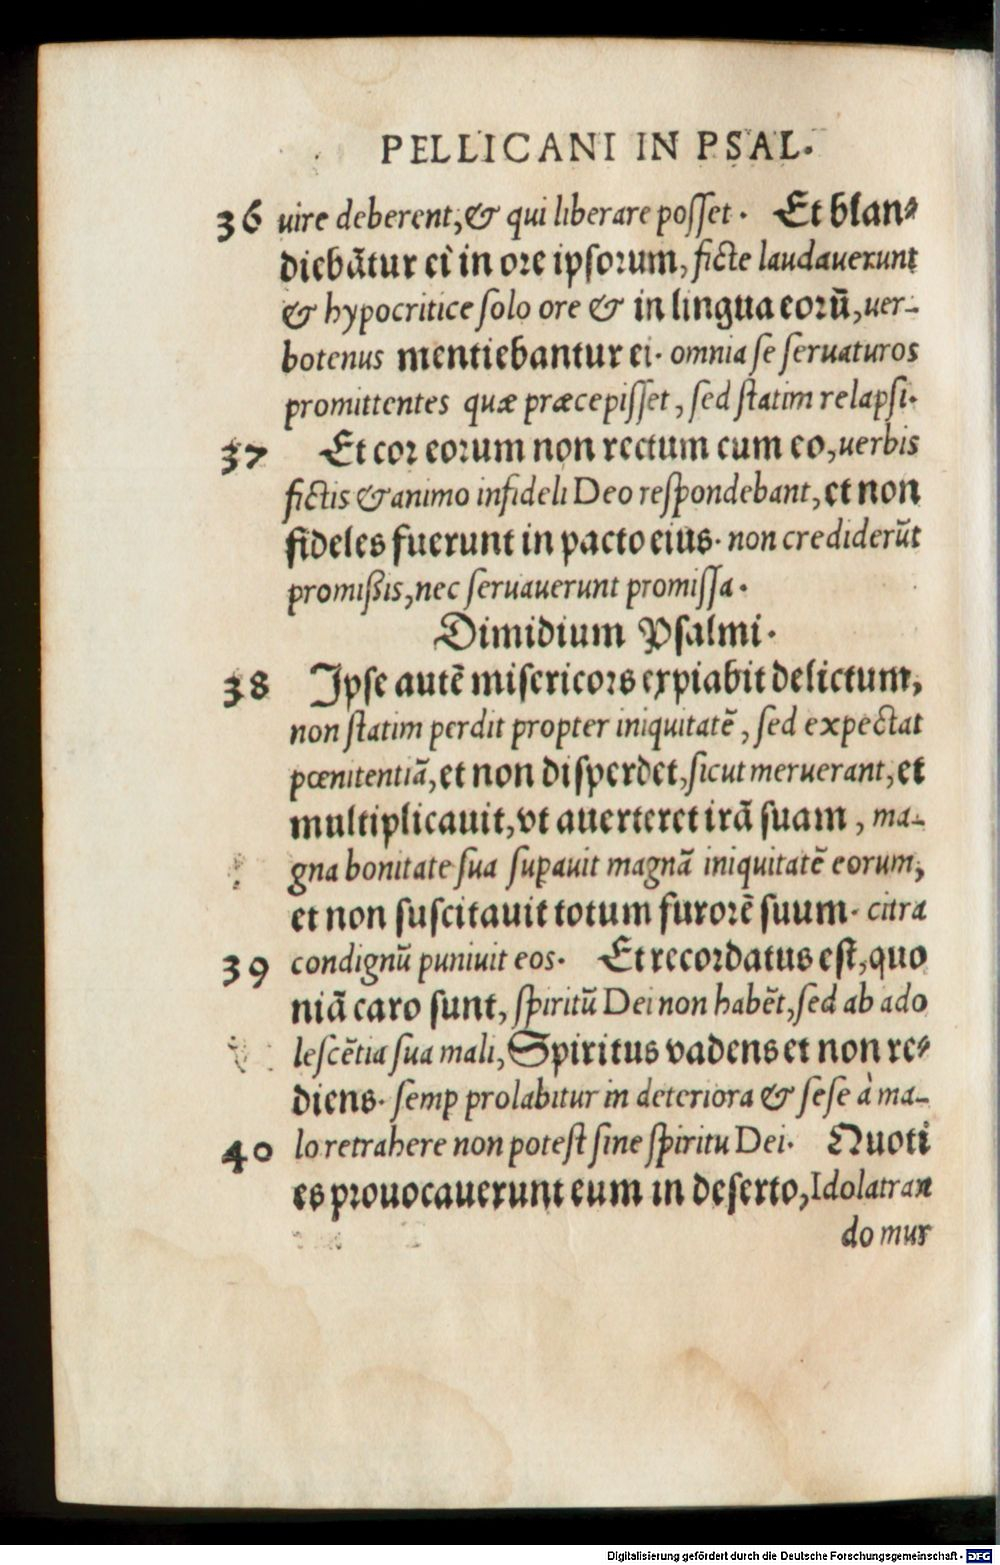 PELLICANI IN PSAL.
36 uire deberent, & qui liberare posset. Et blan⸗
diebãtur ei in ore ipsorum, ficte laudauerunt
& hypocritice solo ore & in lingua eorũ, uer-
botenus mentiebantur ei. omnia se seruaturos
promittentes quæ præcepisset, sed statim relapsi.
37 Et cor eorum non rectum cum eo, uerbis
fictis & animo infideli Deo respondebant, et non
fideles fuerunt in pacto eius. non crediderũt
promißis, nec seruauerunt promissa.
Dimidium Psalmi.
38 Ipse autẽ misericors expiabit delictum,
non statim perdit propter iniquitatẽ, sed expectat
pœnitentiã, et non disperdet, sicut meruerant, et
multiplicauit, vt auerteret irã suam, ma-
gna bonitate sua suꝑauit magnã iniquitatẽ eorum,
et non suscitauit totum furorẽ suum. citra
39 condignũ puniuit eos. Et recordatus est, quo
niã caro sunt, spiritũ Dei non habẽt, sed ab ado
lescẽtia sua mali, Spiritus vadens et non re⸗
diens. semꝑ prolabitur in deteriora & sese à ma-
40 lo retrahere non potest sine spiritu Dei. Quoti
es prouocauerunt eum in deserto, Idolatran
do mur
Digitalisierung gefördert durch die Deutsche Forschungsgemeinschaft - DFG